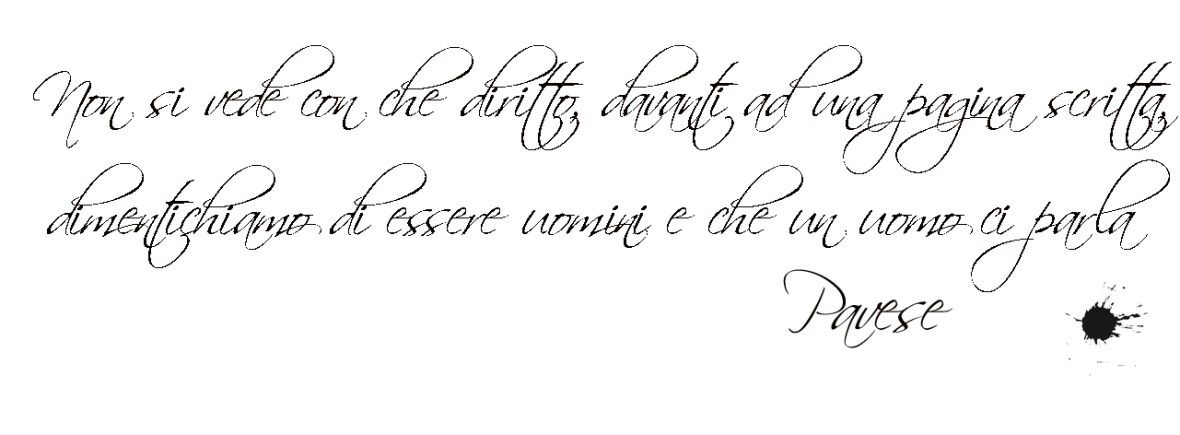 Non si vede con che diritto, davanti ad una pagina scritta,
dimentichiamo di essere uomini e che un uomo ci parla
Pavese